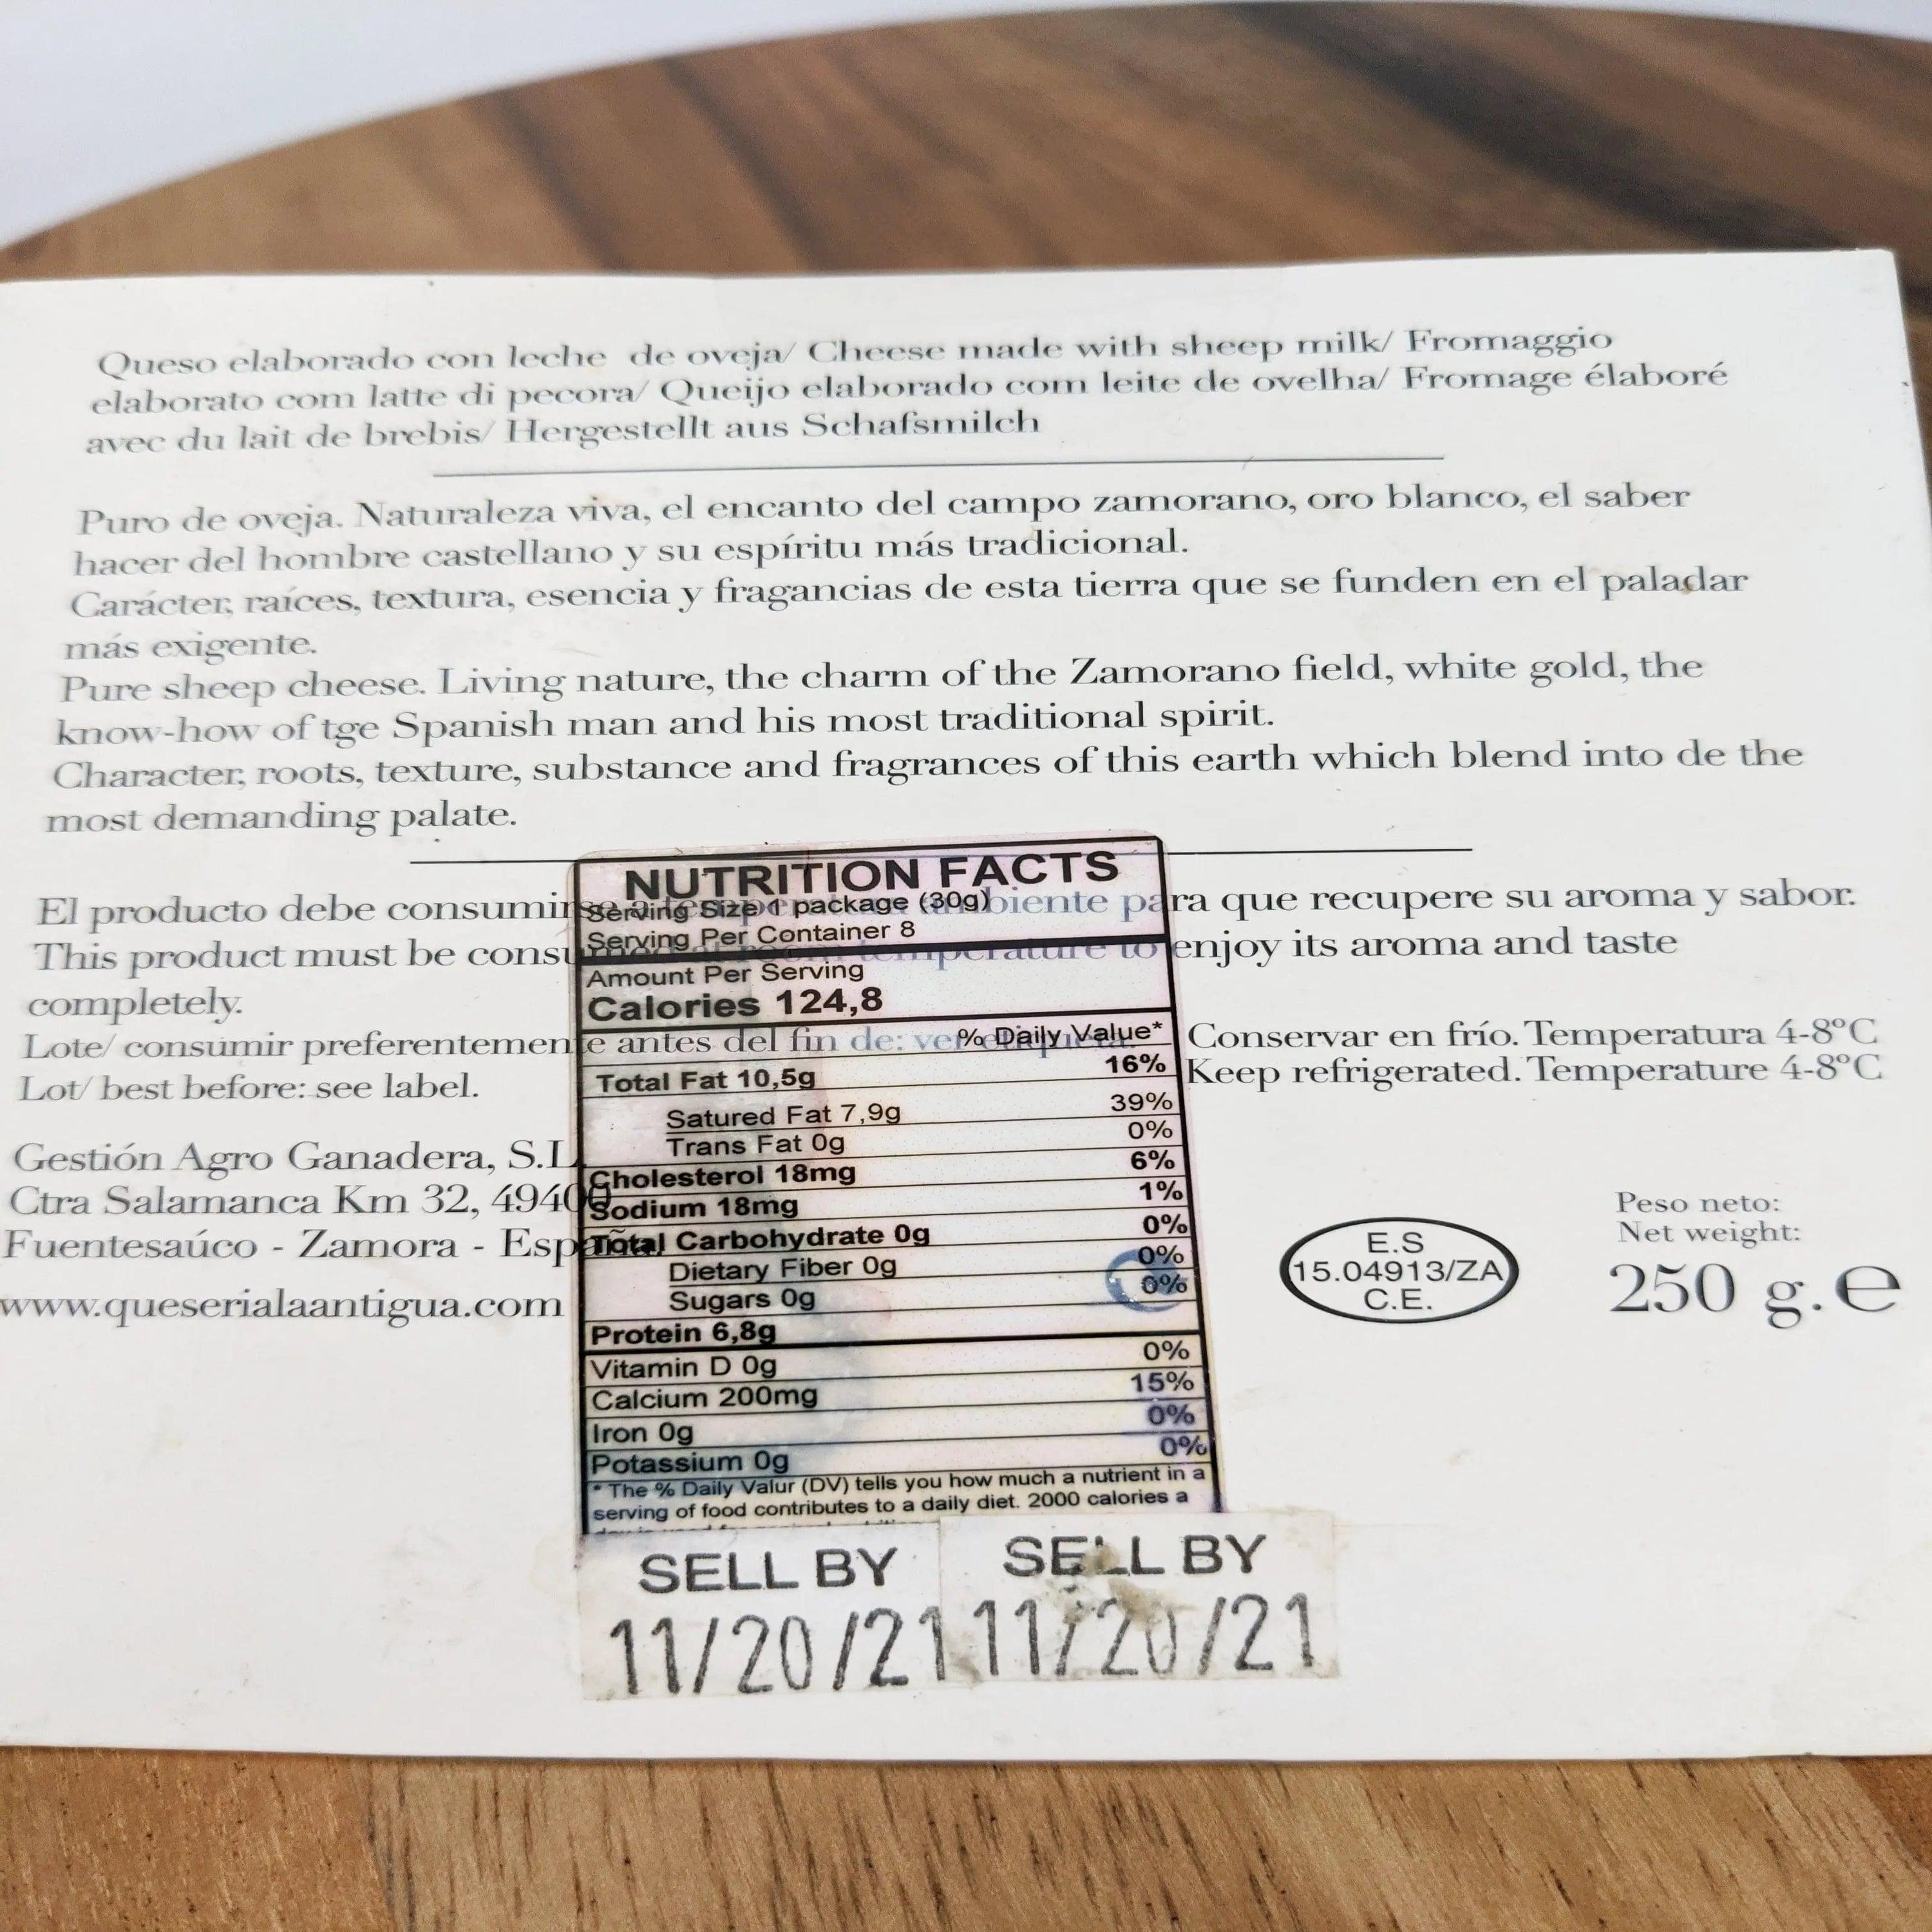 Queso elaborado con leche de oveja/ Cheese made with sheep milk/ Fromaggio
elaborato com latte di pecora/ Queijo elaborado com leite de ovelha/ Fromage élaboré
avec du lait de brebis/ Hergestellt aus Schafsmilch
Puro de oveja. Naturaleza viva, el encanto del campo zamorano, oro blanco, el saber
hacer del hombre castellano y su espíritu más tradicional.
Carácter, raíces, textura, esencia y fragancias de esta tierra que se funden en el paladar
más exigente.
Pure sheep cheese. Living nature, the charm of the Zamorano field, white gold, the
know-how of tge Spanish man and his most traditional spirit.
Character, roots, texture, substance and fragrances of this earth which blend into de the
most demanding palate.
El producto debe consumirse a temperatura ambiente para que recupere su aroma y sabor.
This product must be consumed at room temperature to enjoy its aroma and taste
completely.
Lote/ consumir preferentemente antes del fin de: ver etiqueta. Conservar en frío. Temperatura 4-8ºC
Lot/ best before: see label. Keep refrigerated. Temperature 4-8ºC
Gestión Agro Ganadera, S.L.
Ctra Salamanca Km 32, 49400
Fuentesaúco - Zamora - España
www.queserialaantigua.com
NUTRITION FACTS
Serving Size 1 package (30g)
Serving Per Container 8
Amount Per Serving
Calories 124,8
% Daily Value*
Total Fat 10,5g 16%
Satured Fat 7,9g 39%
Trans Fat 0g 0%
Cholesterol 18mg 6%
Sodium 18mg 1%
Total Carbohydrate 0g 0%
Dietary Fiber 0g 0%
Sugars 0g 0%
Protein 6,8g
Vitamin D 0g 0%
Calcium 200mg 15%
Iron 0g 0%
Potassium 0g 0%
* The % Daily Valur (DV) tells you how much a nutrient in a
serving of food contributes to a daily diet. 2000 calories a
E.S
15.04913/ZA
C.E.
Peso neto:
Net weight:
250 g. e
SELL BY SELL BY
11/20/21 11/20/21